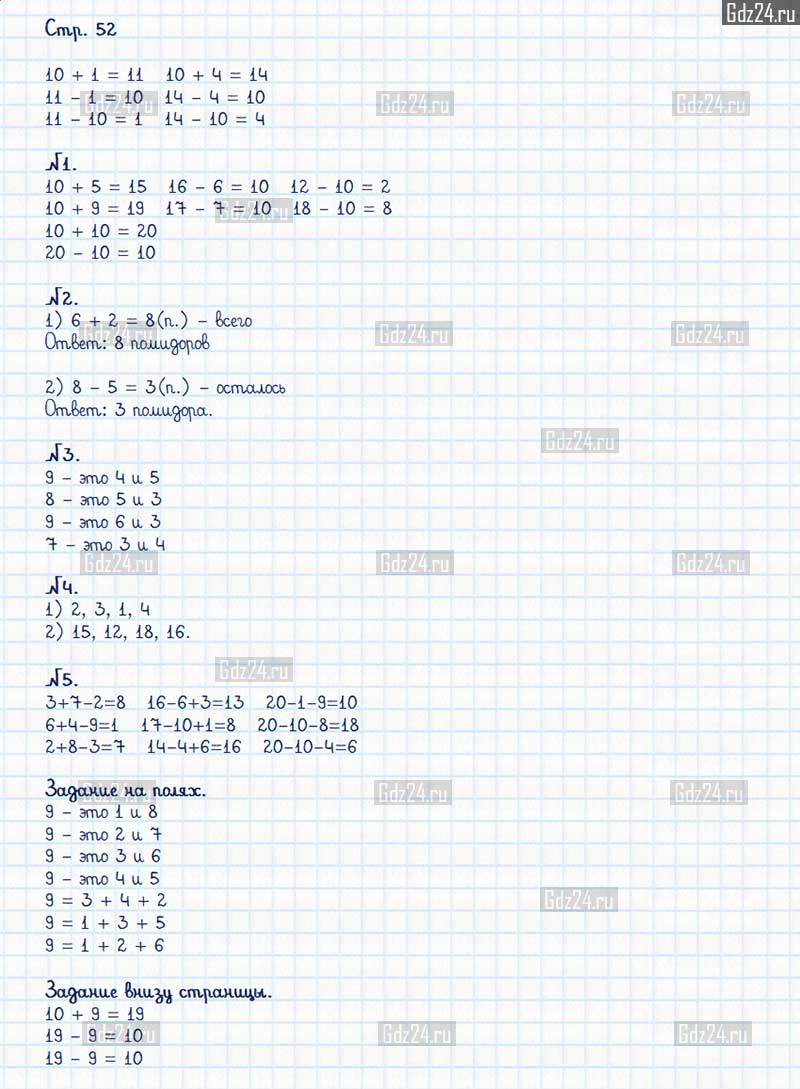 Gdz24.ru
Стр. 52
10 + 1 = 11 10 + 4 = 14
11 - 1 = 10 14 - 4 = 10
11 - 10 = 1 14 - 10 = 4
№1.
10 + 5 = 15 16 - 6 = 10 12 - 10 = 2
10 + 9 = 19 17 - 7 = 10 18 - 10 = 8
10 + 10 = 20
20 - 10 = 10
№2.
1) 6 + 2 = 8(п.) - всего
Ответ: 8 помидоров
2) 8 - 5 = 3(п.) - осталось
Ответ: 3 помидора.
№3.
9 - это 4 и 5
8 - это 5 и 3
9 - это 6 и 3
7 - это 3 и 4
№4.
1) 2, 3, 1, 4
2) 15, 12, 18, 16.
№5.
3+7-2=8 16-6+3=13 20-1-9=10
6+4-9=1 17-10+1=8 20-10-8=18
2+8-3=7 14-4+6=16 20-10-4=6
Задание на полях.
9 - это 1 и 8
9 - это 2 и 7
9 - это 3 и 6
9 - это 4 и 5
9 = 3 + 4 + 2
9 = 1 + 3 + 5
9 = 1 + 2 + 6
Задание внизу страницы.
10 + 9 = 19
19 - 9 = 10
19 - 9 = 10